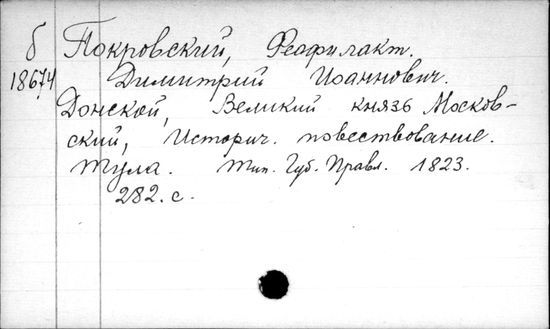 б Покровский, Феофилакт.
18674 Димитрий Иоаннович.
Донской, Великий князь Москов-
ский, Историч. повествование.
Тула. Тип. Губ. Правл. 1823.
282. с.